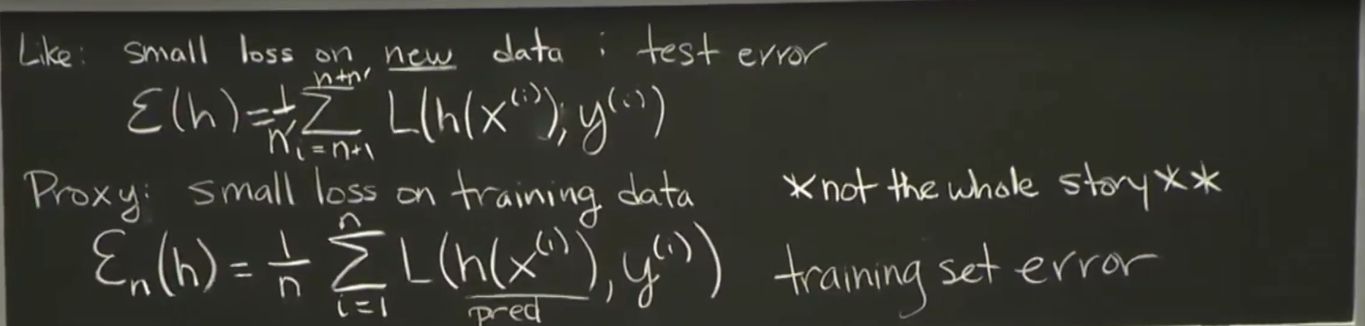 Like: small loss on new data : test error
ℰ(h) = 1/n' Σ_{i=n+1}^{n+n'} L(h(x^(i)), y^(i))
Proxy: small loss on training data *not the whole story**
ℰ_n(h) = 1/n Σ_{i=1}^{n} L(h(x^(i)), y^(i)) training set error
pred